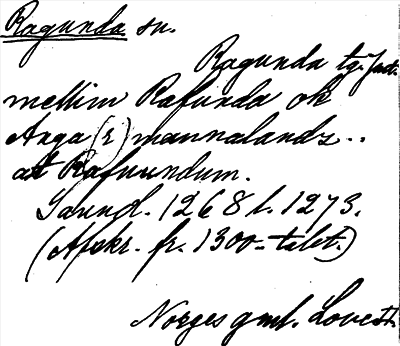 Ragunda sn.
Ragunda tg. Jmt.
mellim Rafunda ok
Anga(r) mannalands..
at Rafnundum.
Sannol. 1268 l. 1273.
(Afskr. fr. 1300-talet.)
Norges gml. Love II